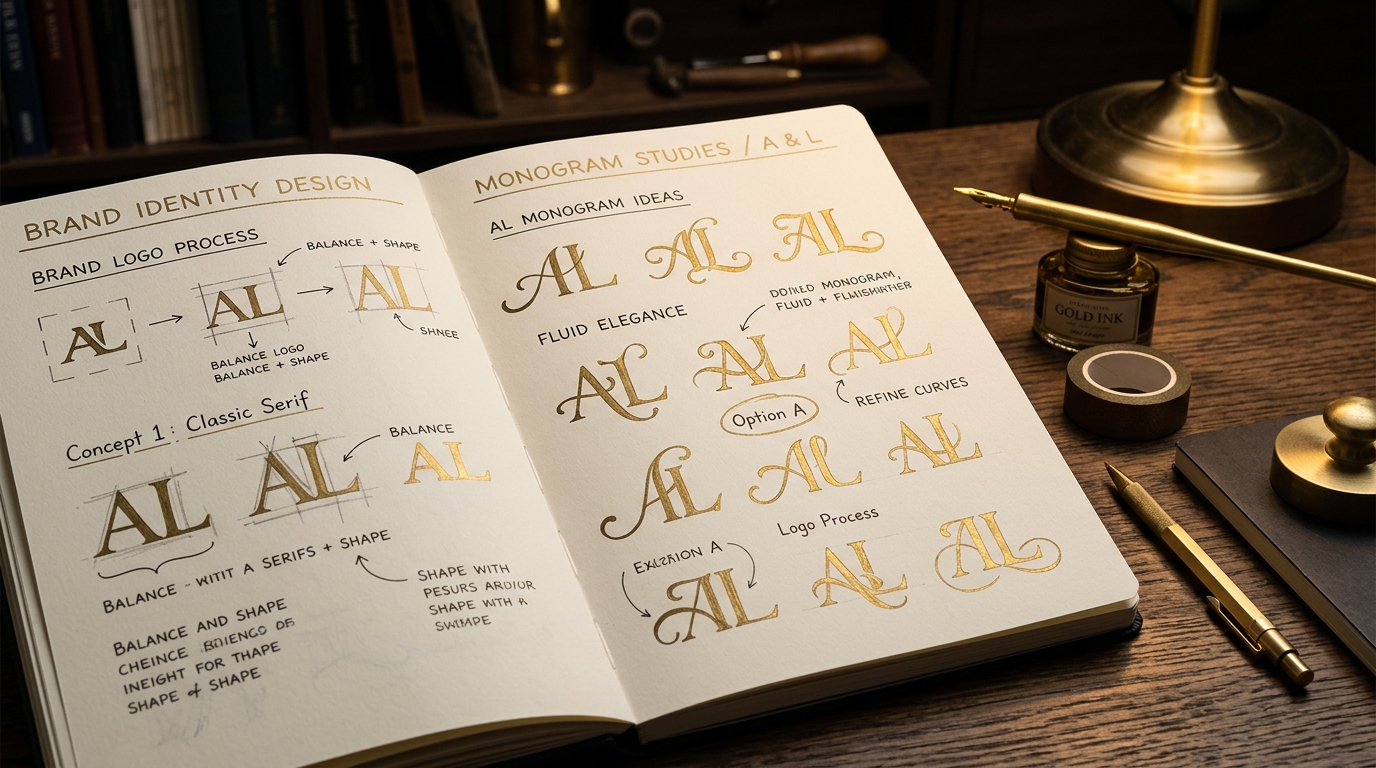 BRAND IDENTITY DESIGN
BRAND LOGO PROCESS
BALANCE + SHAPE
AL
AL
AL
SHNEE
BALANCE LOGO
BALANCE + SHAPE
Concept 1: Classic Serif
BALANCE
AL
AL
AL
BALANCE - WITIT A SERIFS + SHAPE
SHAPE WITH
PESURS
SHAPE WITH A
SWIMPE
BALANCE AND SHAPE
CHEINCE OF
INEIGHT FOR THAPE
SHAPE & SHAPE
MONOGRAM STUDIES / A & L
AL MONOGRAM IDEAS
AL
AL
AL
FLUID ELEGANCE
MONOGRAM,
FLUID +
AL
AL
AL
Option A
REFINE CURVES
AL
AL
AL
Logo Process
A
AL
AL
AL
GOLD INK